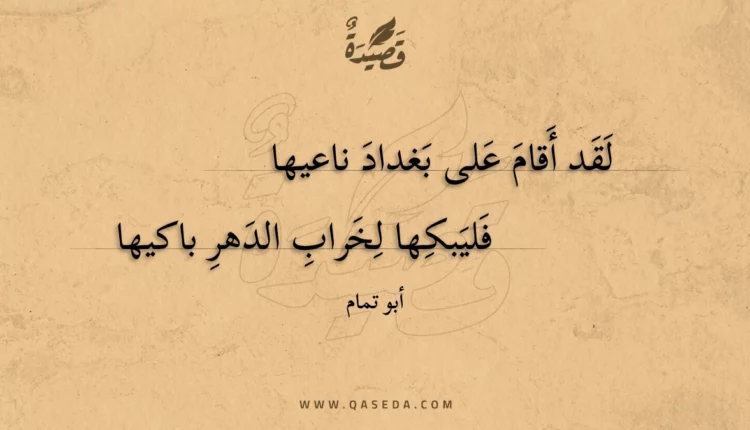 قَصِيدَةٌ
لَقَد أَقامَ عَلى بَغدادَ ناعيها
فَليَبكِها لِخَرابِ الدَهرِ باكيها
أبو تمام
WWW.QASEDA.COM